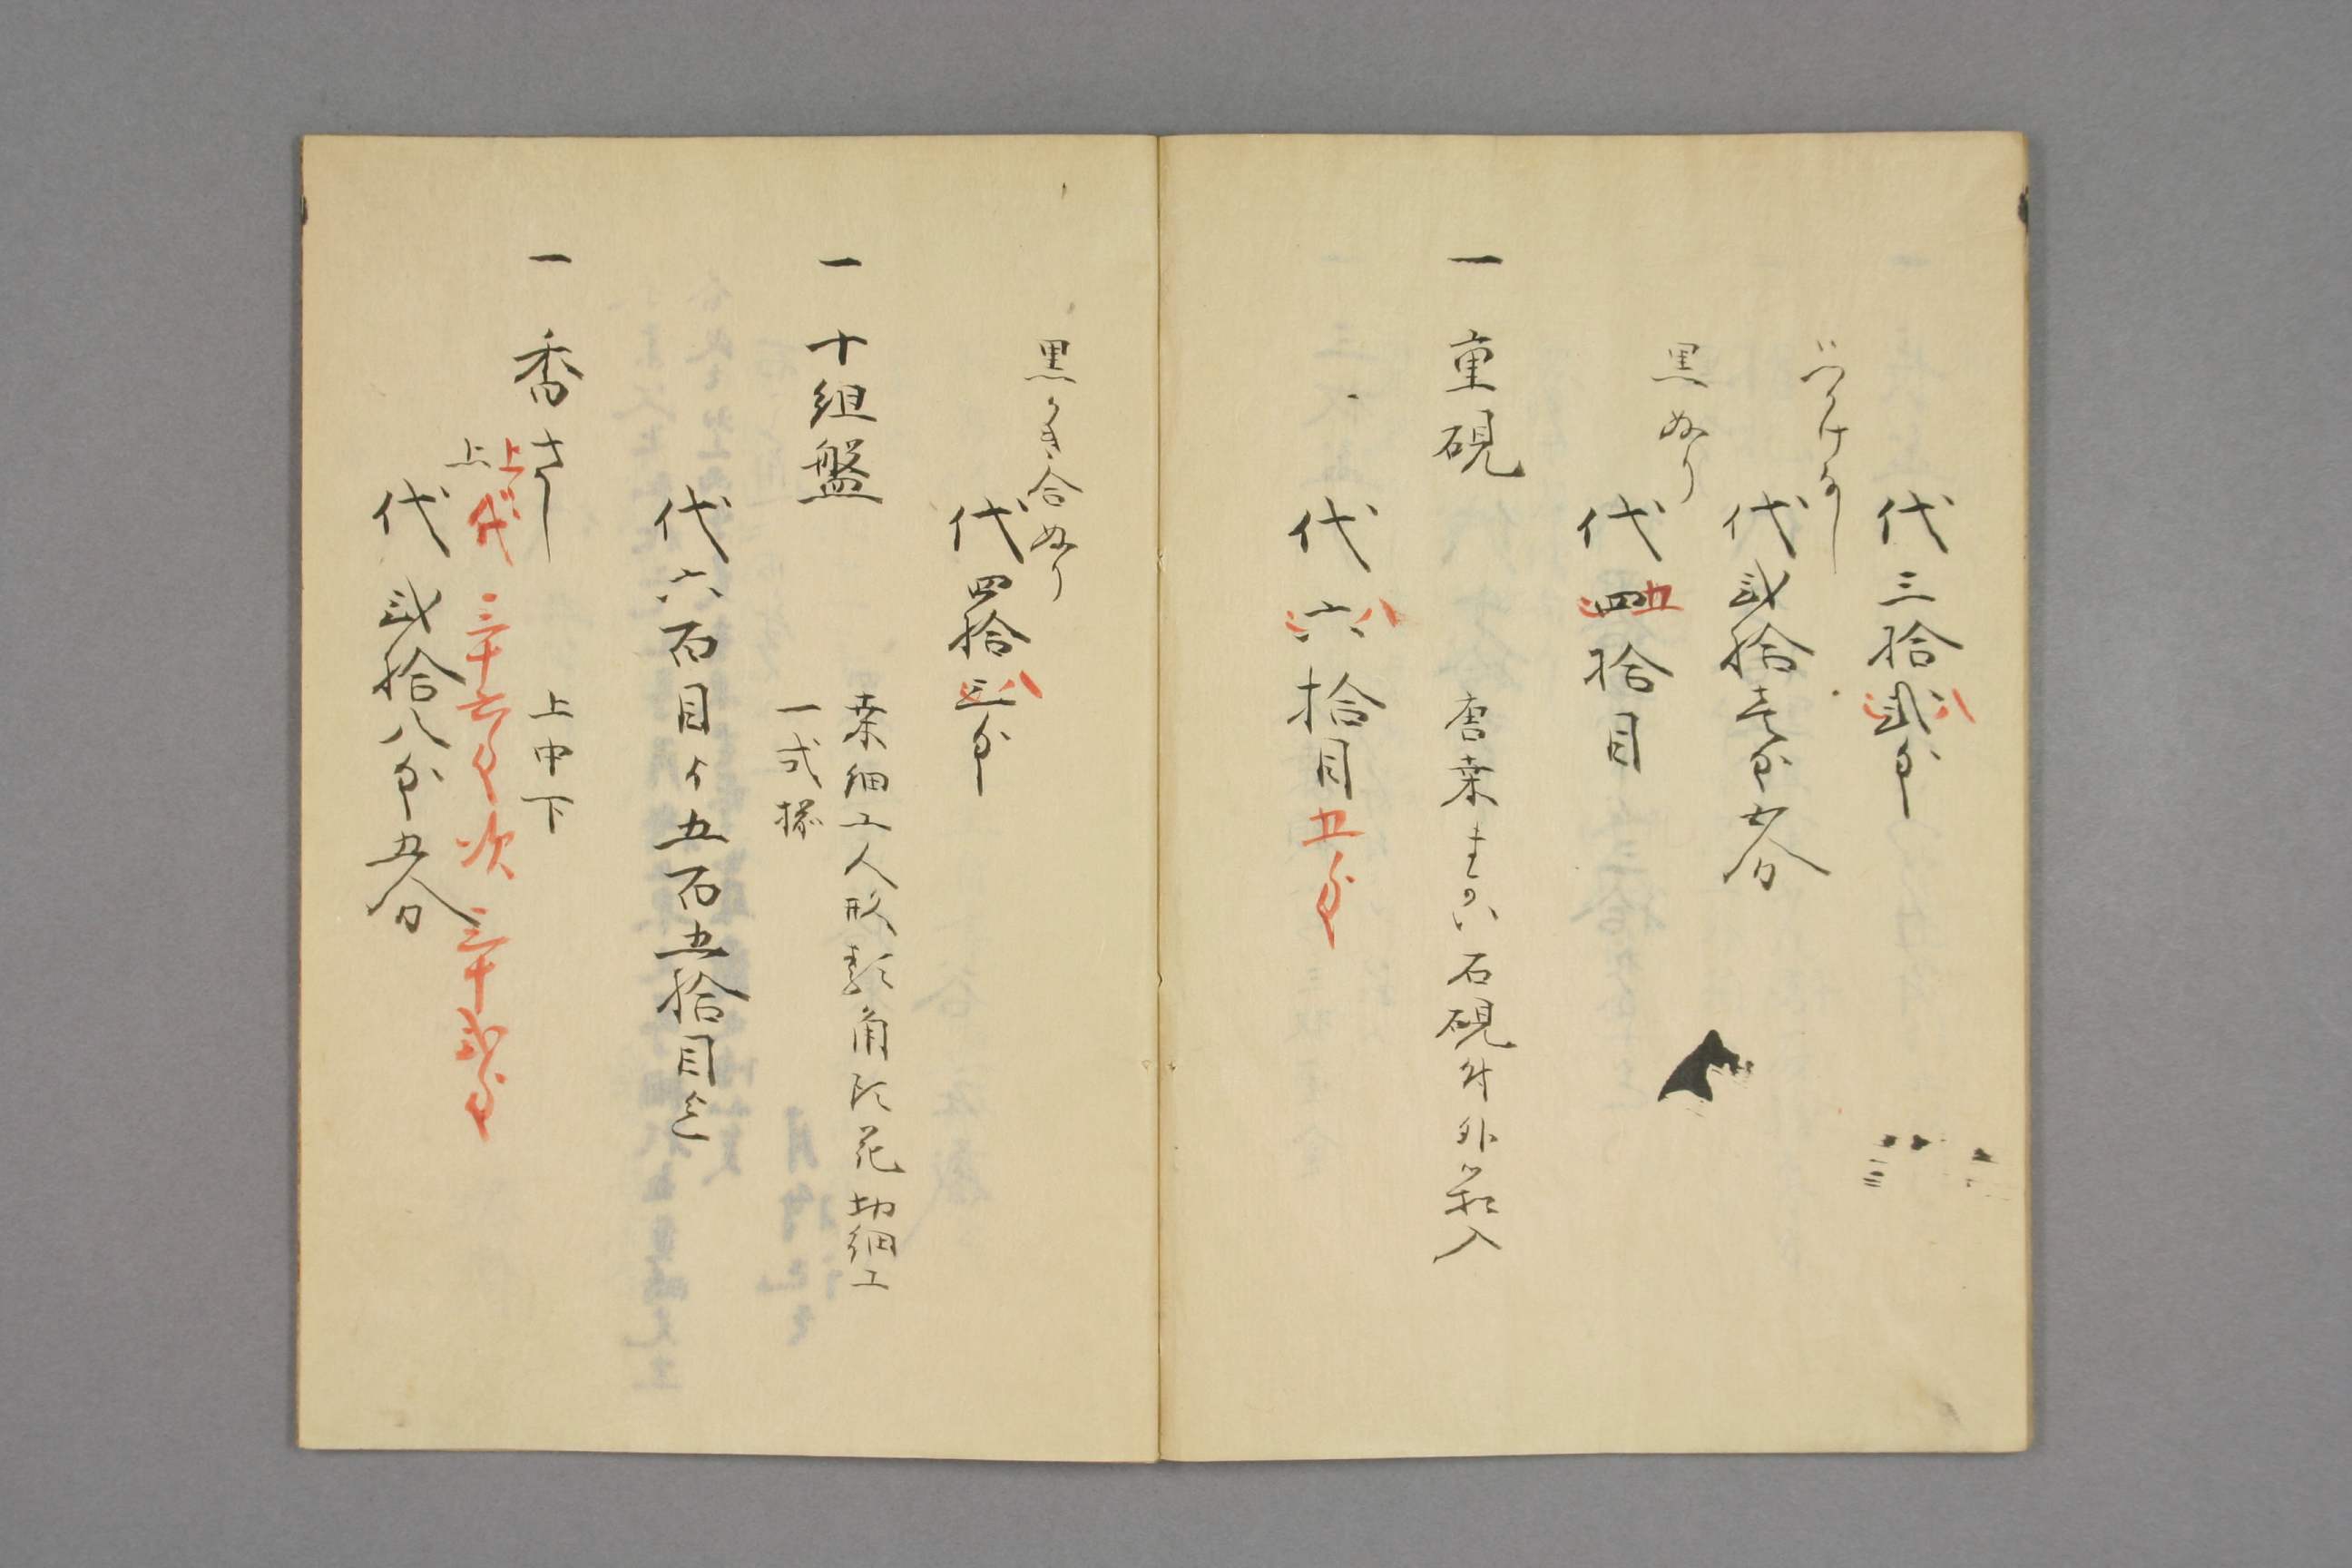 代三拾弐匁 八
つけなし
代弐拾壱匁六分
黒ぬり
代四拾目 五
一 重硯 唐桑 石硯外箱入
代六拾目 八 五匁
黒かき合ぬり
代四拾三匁 八
一 十組盤 桑細工人形類角びし花切細工
一式揃
代六百目ゟ五百五拾目迄
一 香さし 上中下
上 代三十六匁 次三十弐匁
上
代弐拾八匁五分